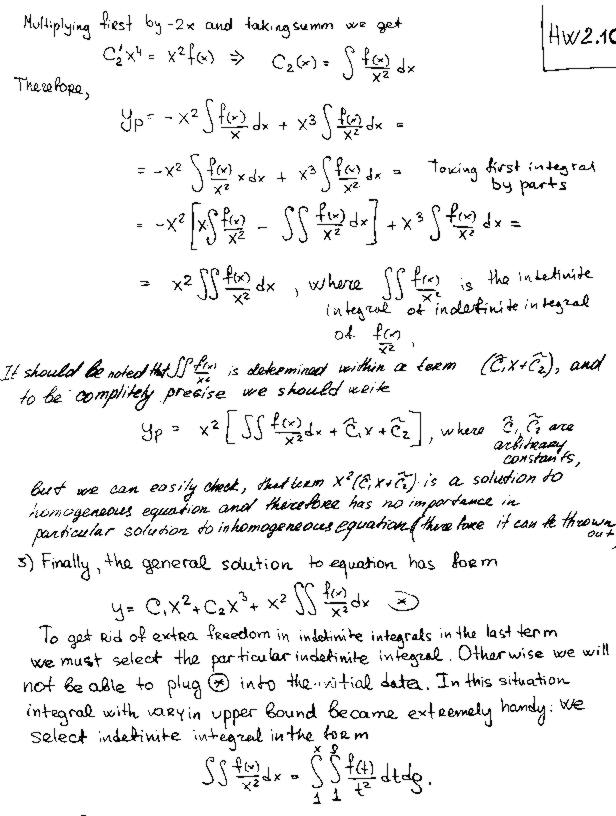 Multiplying first by -2x and taking summ we get
HW2.10
C₂'x⁴ = x²f(x) ⇒ C₂(x) = ∫ f(x)/x² dx
Therefore,
yp = - x² ∫ f(x)/x dx + x³ ∫ f(x)/x² dx =
= -x² ∫ f(x)/x² x dx + x³ ∫ f(x)/x² dx = Taking first integral
by parts
= -x² [x∫ f(x)/x² - ∫∫ f(x)/x² dx] + x³ ∫ f(x)/x² dx =
= x² ∫∫ f(x)/x² dx , where ∫∫ f(x)/x² is the indefinite
integral of indefinite integral
of f(x)/x² ,
It should be noted that ∫∫ f(x)/x² is determined within a term (C̃₁x+C̃₂), and
to be complitely precise we should write
yp = x² [∫∫ f(x)/x² dx + C̃₁x + C̃₂] , where C̃₁, C̃₂ are
arbitrary
constants,
but we can easily check, that term x²(C̃₁x+C̃₂) is a solution to
homogeneous equation and therefore has no importance in
particular solution to inhomogeneous equation (therefore it can be thrown
out
3) Finally, the general solution to equation has form
y = C₁x² + C₂x³ + x² ∫∫ f(x)/x² dx (*)
To get rid of extra freedom in indefinite integrals in the last term
we must select the particular indefinite integral. Otherwise we will
not be able to plug (*) into the initial data. In this situation
integral with varyin upper bound became extremely handy: we
select indefinite integral in the form
∫∫ f(x)/x² dx = ∫₁ˣ ∫₁ᶢ f(t)/t² dt dg.